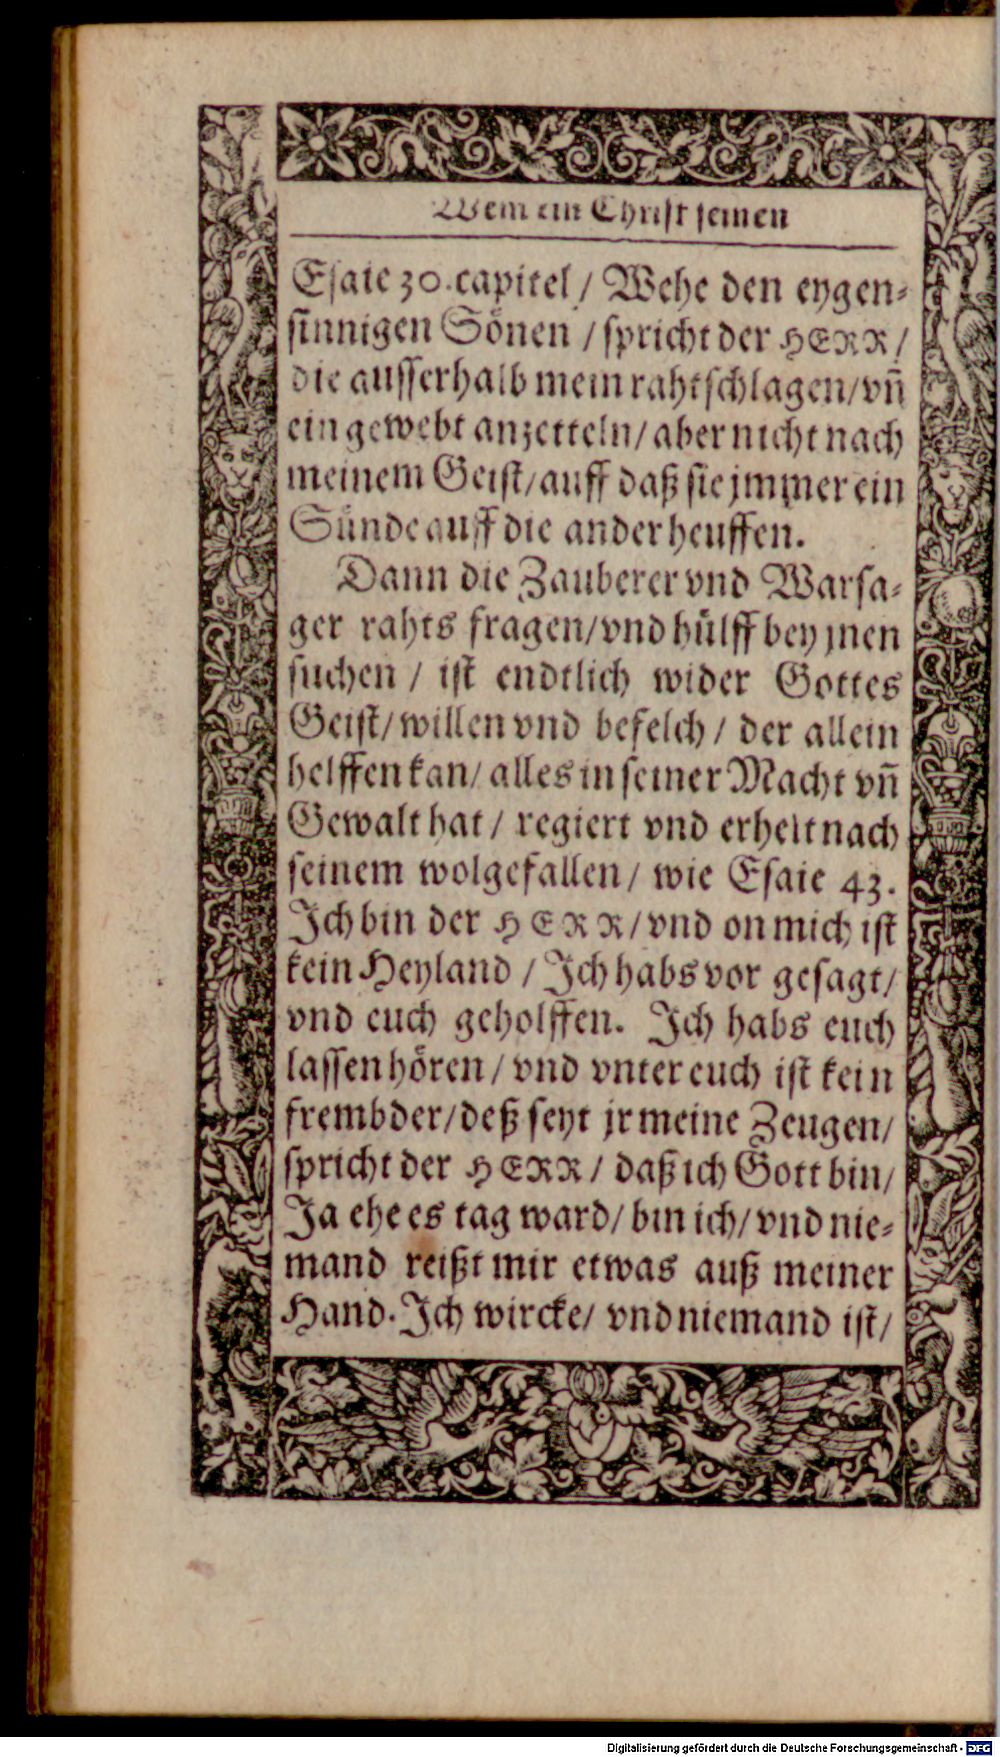 Wem ein Christ seinen
Esaie 30. capitel / Wehe den eygen-
sinnigen Sönen / spricht der HERR /
die ausserhalb mein rahtschlagen / vñ
ein gewebt anzetteln / aber nicht nach
meinem Geist / auff daß sie jmmer ein
Sünde auff die ander heuffen.
Dann die Zauberer vnd Warsa-
ger rahts fragen / vnd hülff bey jnen
suchen / ist endtlich wider Gottes
Geist / willen vnd befelch / der allein
helffen kan / alles in seiner Macht vñ
Gewalt hat / regiert vnd erhelt nach
seinem wolgefallen / wie Esaie 43.
Ich bin der HERR / vnd on mich ist
kein Heyland / Ich habs vor gesagt /
vnd euch geholffen. Ich habs euch
lassen hören / vnd vnter euch ist kein
frembder / deß seyt jr meine Zeugen /
spricht der HERR / daß ich Gott bin /
Ja ehe es tag ward / bin ich / vnd nie-
mand reißt mir etwas auß meiner
Hand. Ich wircke / vnd niemand ist /
Digitalisierung gefördert durch die Deutsche Forschungsgemeinschaft - DFG